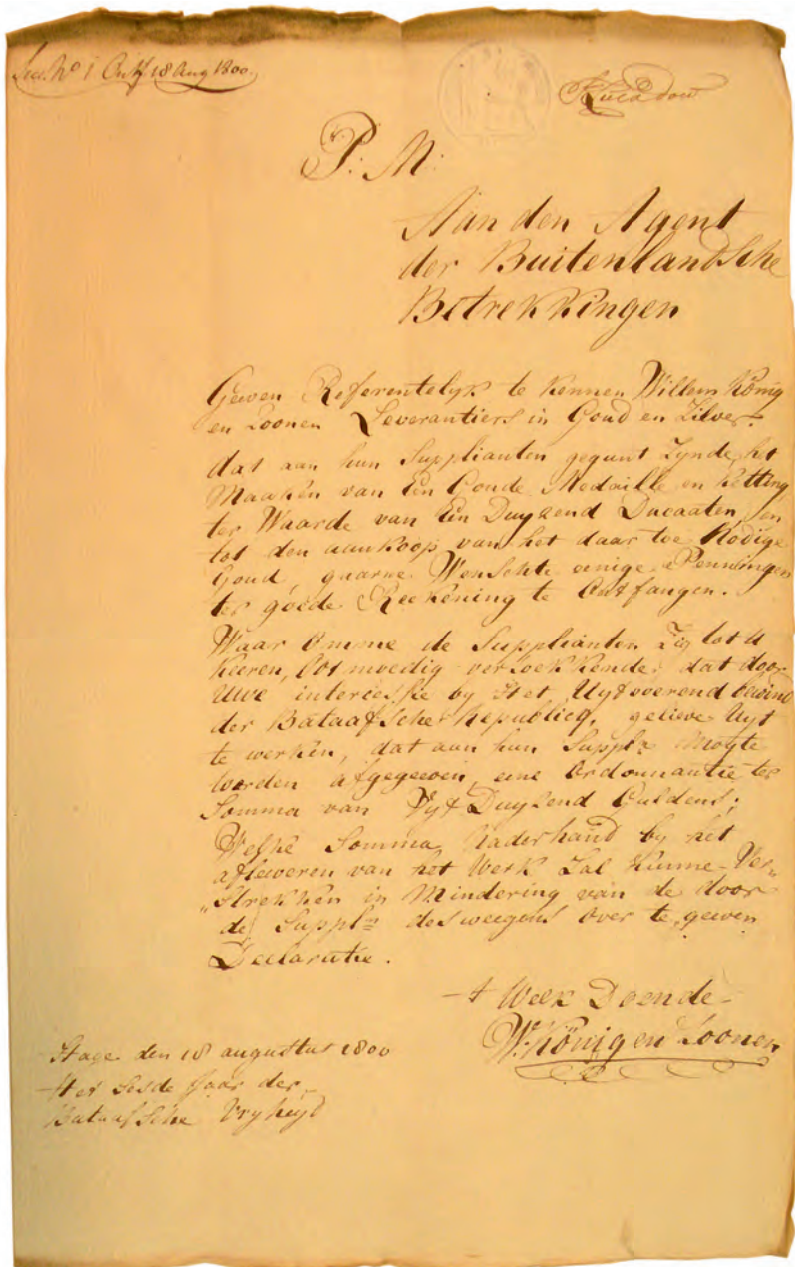 Sec. No 1 Ontf 18 Aug 1800.
P: M:
Aan den Agent
der Buitenlandsche
Betrekkingen
Geeven Referentelyk te Kennen Willem König
en Zoonen Leverantiers in Goud en Zilver.
dat aan hun Supplianten gegunt Zynde, het
Maaken van Een Goude Medaille en Ketting
ter Waarde van Een Duyzend Ducaaten, en
tot den aankoop van het daar toe Nodige
Goud, gaarne Wenschte eenige Penningen
ter goede Reekening te Ontfangen.
Waar Omme de Supplianten Zig tot U
Keeren, Ootmoedig versoekkende: dat door
Uwe intercessie by Het Uytvoerend bewind
der Bataafsche Republicq, gelieve Uyt
te werken, dat aan hun Suppln Mogte
Worden afgegeeven, eene Ordonnantie ter
Somma van Vyf Duyzend Guldens;
Welke Somma Naderhand by het
afleeveren van het Werk Zal Kunne Ver„
„Strekken in Mindering van de door
de Suppln desweegens Over te geeven
Declaratie.
't Welk Doende
W. König en Zoonen
Hage den 18 augustus 1800
Het Sesde Jaar der
Bataafsche Vryheyd